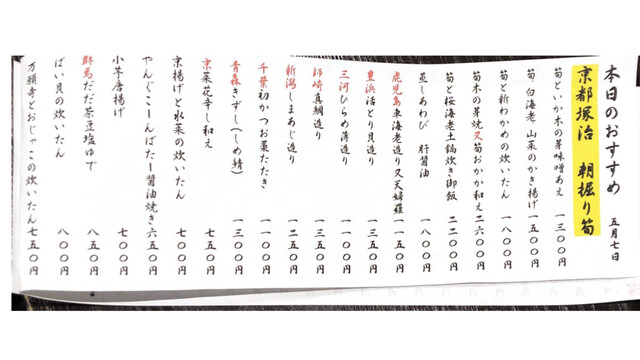 本日のおすすめ 五月七日
京都塚治 朝掘り筍
筍といか木の芽味噌あえ 一三〇〇円
筍 白海老 山菜のかき揚げ 一五〇〇円
筍と新わかめの炊いたん 一八〇〇円
筍木の芽焼又筍おかか和え 二六〇〇円
筍と桜海老土鍋炊き御飯 二二〇〇円
蒸しあわび 肝醤油 一八〇〇円
鹿児島車海老造り又天婦羅 一一五〇円
豊浜活とり貝造り 一三五〇円
三河ひらめ薄造り 一一〇〇円
師崎真鯛造り 一三五〇円
新潟しまあじ造り 一二五〇円
千葉初かつお藁たたき 一一〇〇円
青森きずし(しめ鯖) 一三〇〇円
京菜花辛し和え 七五〇円
京揚げと水菜の炊いたん 七〇〇円
やんぐこーんばたー醤油焼き 六五〇円
小芋唐揚げ 七〇〇円
群馬だだ茶豆塩ゆで 八五〇円
ばい貝の炊いたん 八〇〇円
万願寺とおじゃこの炊いたん 七五〇円